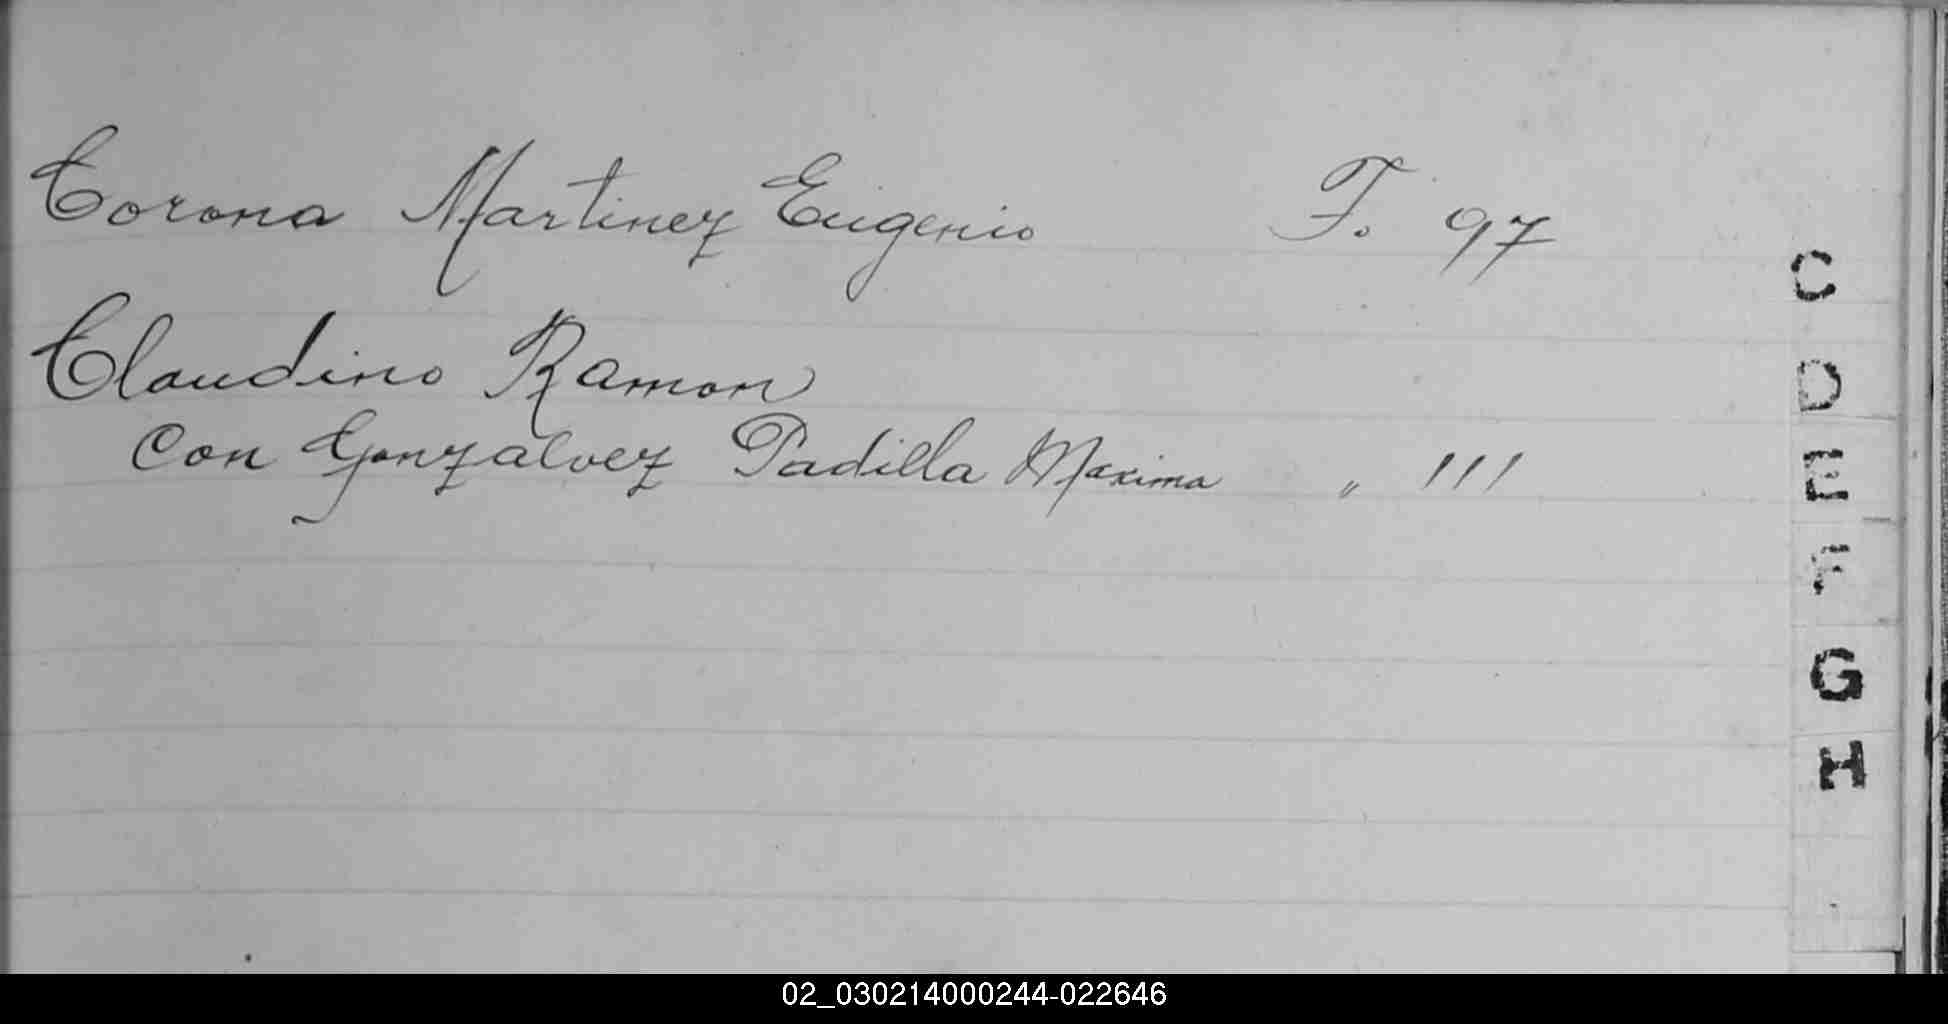 Corona Martinez Eugenio F. 97
Claudino Ramon
Con Gonzalvez Padilla Maxima " 111
C
D
E
F
G
H
02_030214000244-022646